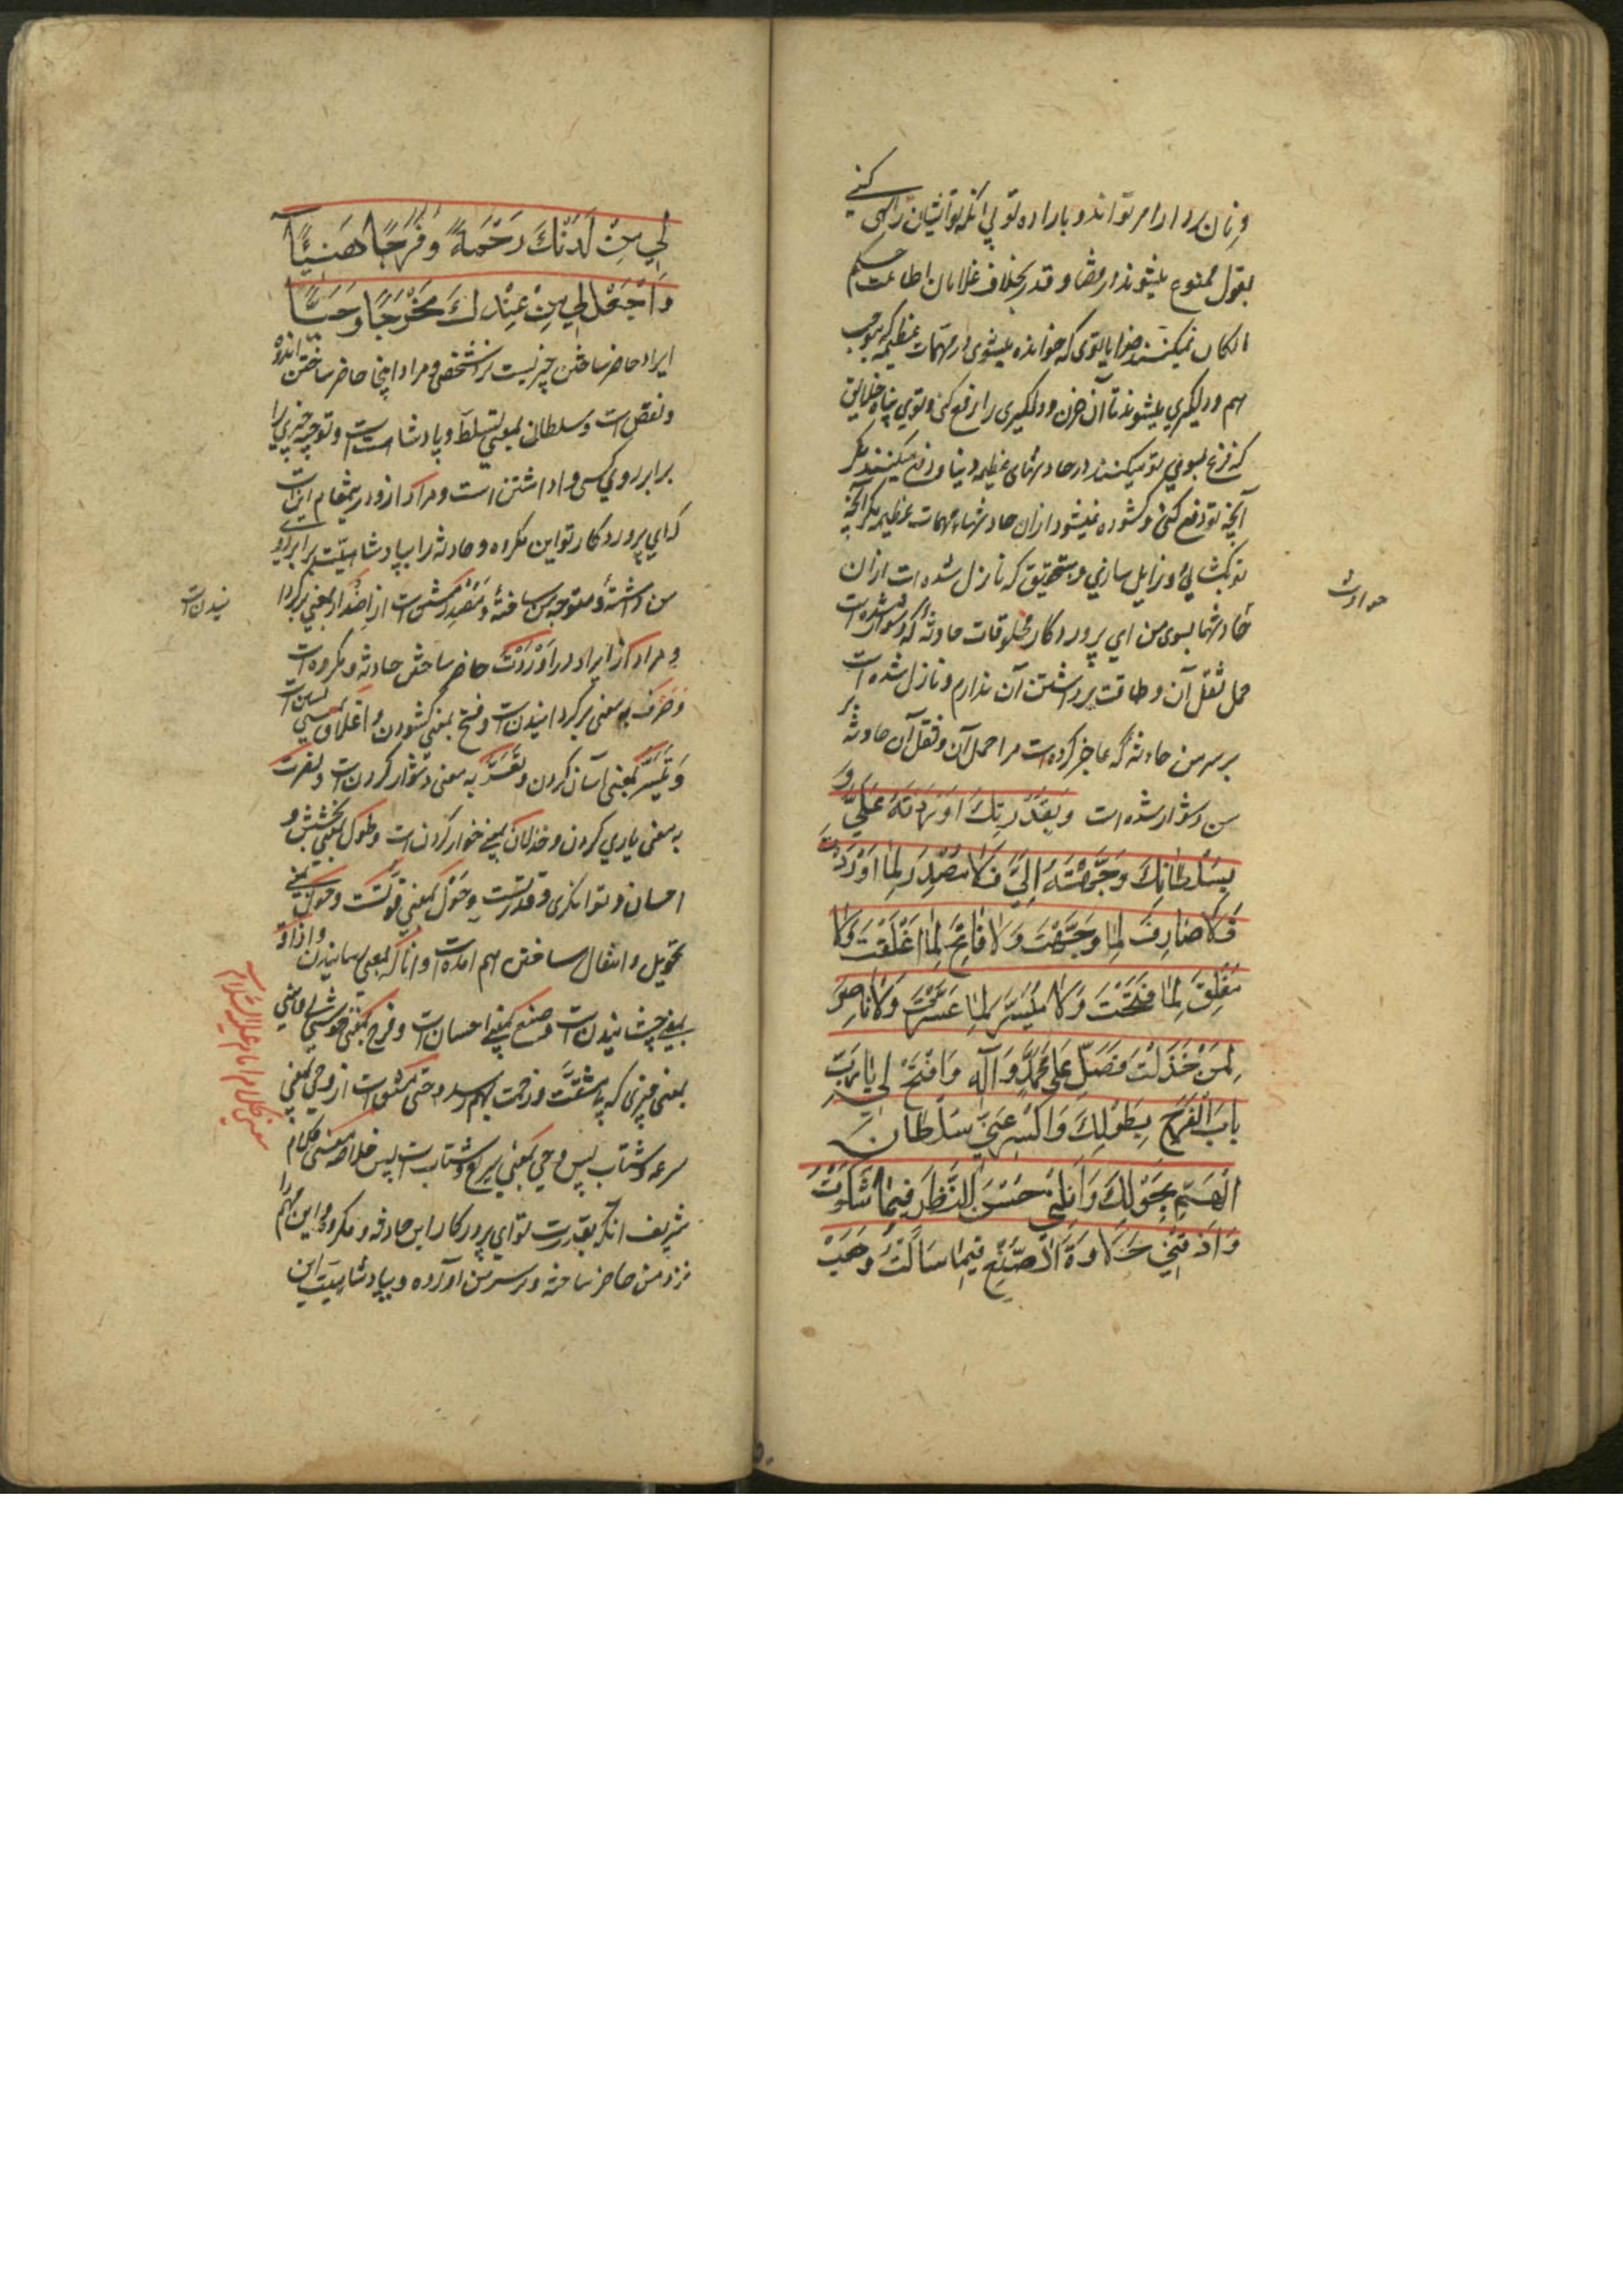 و فرمان بردارا امر تواند و باراده تو بی آنکه تو ایشان را نهی کنی
بقول ممنوع میشوند از مضا و قدر بخلاف غلامان اطاعت حکم
خدایا توی که خوانده میشوی در مهمات عظیمه که بموجب
هم و دلگیری میشوند تا آن حزن و دلگیری را رفع کنی و توی پناه خلایق
که فزع بسوی تو میکنند در حادثهای عظیمه دنیا و دفع نمیکنند مگر
آنچه تو دفع کنی و کشوده نمیشود ازان حادثها و مهمات عظیمه مگر آنچه
تو بکشائی و زایل سازی و بتحقیق که نازل شده است ازان
حوادث
حادثها بسوی من ای پروردگار مخلوقات حادثه که دشوار شده است
حمل ثقل آن و طاقت برداشتن آن ندارم و نازل شده است
بر سر من حادثه که عاجز کرده است مرا حمل آن و ثقل آن حادثه بر
من دشوار شده است وَبِقُدْرَتِكَ اَوْرَدْتَهُ عَلَيَّ وَ
بِسُلْطانِكَ وَجَّهْتَهُ اِلَيَّ فَلا مُصْدِرَ لِما اَوْرَدْتَ
فَلا صارِفَ لِما وَجَّهْتَ وَلا فاتِحَ لِما اَغْلَقْتَ وَلا
مُغْلِقَ لِما فَتَحْتَ وَلا مُيَسِّرَ لِما عَسَّرْتَ وَلا ناصِرَ
لِمَنْ خَذَلْتَ فَصَلِّ عَلي مُحَمَّدٍ وَ آلِه وَافْتَحْ لي يا رَبِّ
بابَ الْفَرَجِ بِطَوْلِكَ وَاكْسِرْ عَنّي سُلْطانَ
الْهَمِّ بِحَوْلِكَ وَاَنِلْني حُسْنَ النَّظَرِ فيما شَكَوْتُ
وَاَذِقْني حَلاوَةَ الصُّنْعِ فيما سَاَلْتُ وَهَبْ
لي مِنْ لَدُنْكَ رَحْمَةً وَفَرَجًا هَنيئًا
وَاجْعَلْ لي مِنْ عِنْدِكَ مَخْرَجًا وَحِيًّا
ایراد حاضر ساختن چیزیست نزد شخصی و مراد اینجا حاضر ساختن اندوه
و نقص است و سلطان بمعنی تسلط و پادشاهست و توجیه چیزی را
برابر روی کسی واداشتن است و مراد ازو درینمقام اینست
که ای پروردگار تو این مکروه و حادثه را بپادشاهیت برابر روی
من داشتهٔ و متوجه من ساختهٔ و مصدر مشتق است از اصدار بمعنی برگردا
نیدن است
و مراد از ایراد در اوردت حاضر ساختن حادثه و مکروه است
و صرف به معنی برگردانیدن است و فتح بمعنی کشودن و اغلاق بمعنی بستن است
و تیسّر بمعنی آسان کردن و تعسّر به معنی دشوار کردن است و نصرت
به معنی یاری کردن و خذلان بمعنی خوار کردن است و طول بمعنی بخشش و
احسان و توانگری و قدرتست و حول بمعنی قوتست و حول بمعنی
تحویل و انتقال ساختن هم آمده است و اناله بمعنی رسانیدن و اذاقه
بمعنی چشانیدن است و صنع بمعنی احسان است و فرج بمعنی خوشی و هنی
بمعنی چیزی که بی مشقت و زحمت بهم رسد و حی مشتق است از وحی بمعنی
سرعه و شتاب پس وحی بمعنی سریع و شتاب است پس خلاصه معنی کلام
معنی کلام امام علیه السلام
شریف انکه بقدرت تو ای پروردگار این حادثه و مکروه و این مهم را
نزد من حاضر ساخته و بر سر من آورده و بپادشاهیت این